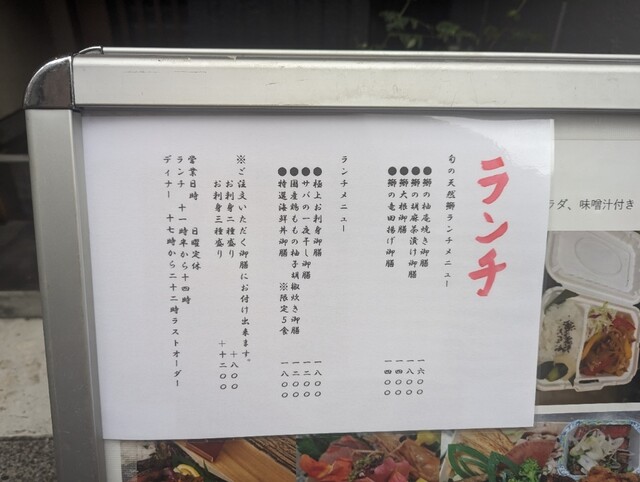 ランチ
旬の天然鰤ランチメニュー
●鰤の柚庵焼き御膳 一六〇〇
●鰤の胡麻茶漬け御膳 一八〇〇
●鰤大根御膳 一四〇〇
●鰤の竜田揚げ御膳 一四〇〇
ランチメニュー
●極上お刺身御膳 一八〇〇
●サバの一夜干し御膳 一二〇〇
●国産鶏ももの柚子胡椒炊き御膳 一二〇〇
●特選海鮮丼御膳 ※限定5食 一八〇〇
※ご注文いただく御膳にお付け出来ます。
お刺身二種盛り +八〇〇
お刺身三種盛り +十二〇〇
営業日時 日曜定休
ランチ 十一時半から十四時
ディナー 十七時から二十二時ラストオーダー
ラダ、味噌汁付き